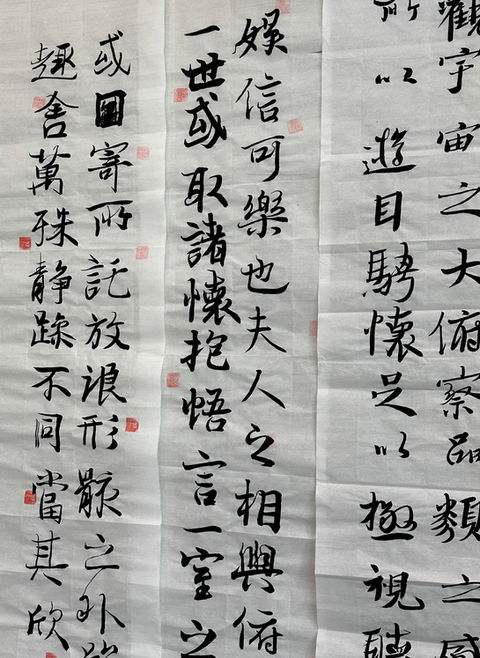 觀宇宙之大俯察品類之
所以遊目騁懷足以極視聽
娛信可樂也夫人之相與俯
一世或取諸懷抱悟言一室之
或因寄所託放浪形骸之外雖
趣舍萬殊靜躁不同當其欣